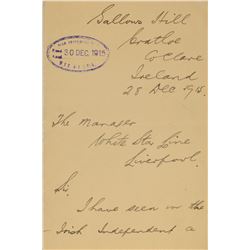 Gallows Hill
Cratloe
Co Clare
Ireland
30 DEC 1915
28 Dec 1915.
The Manager
White Star Line
Liverpool.
Sir.
I have seen in the
Irish Independent a